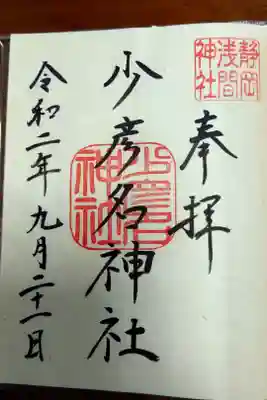 静岡
浅間
神社
奉拝
少彦名神社
令和二年九月二十一日